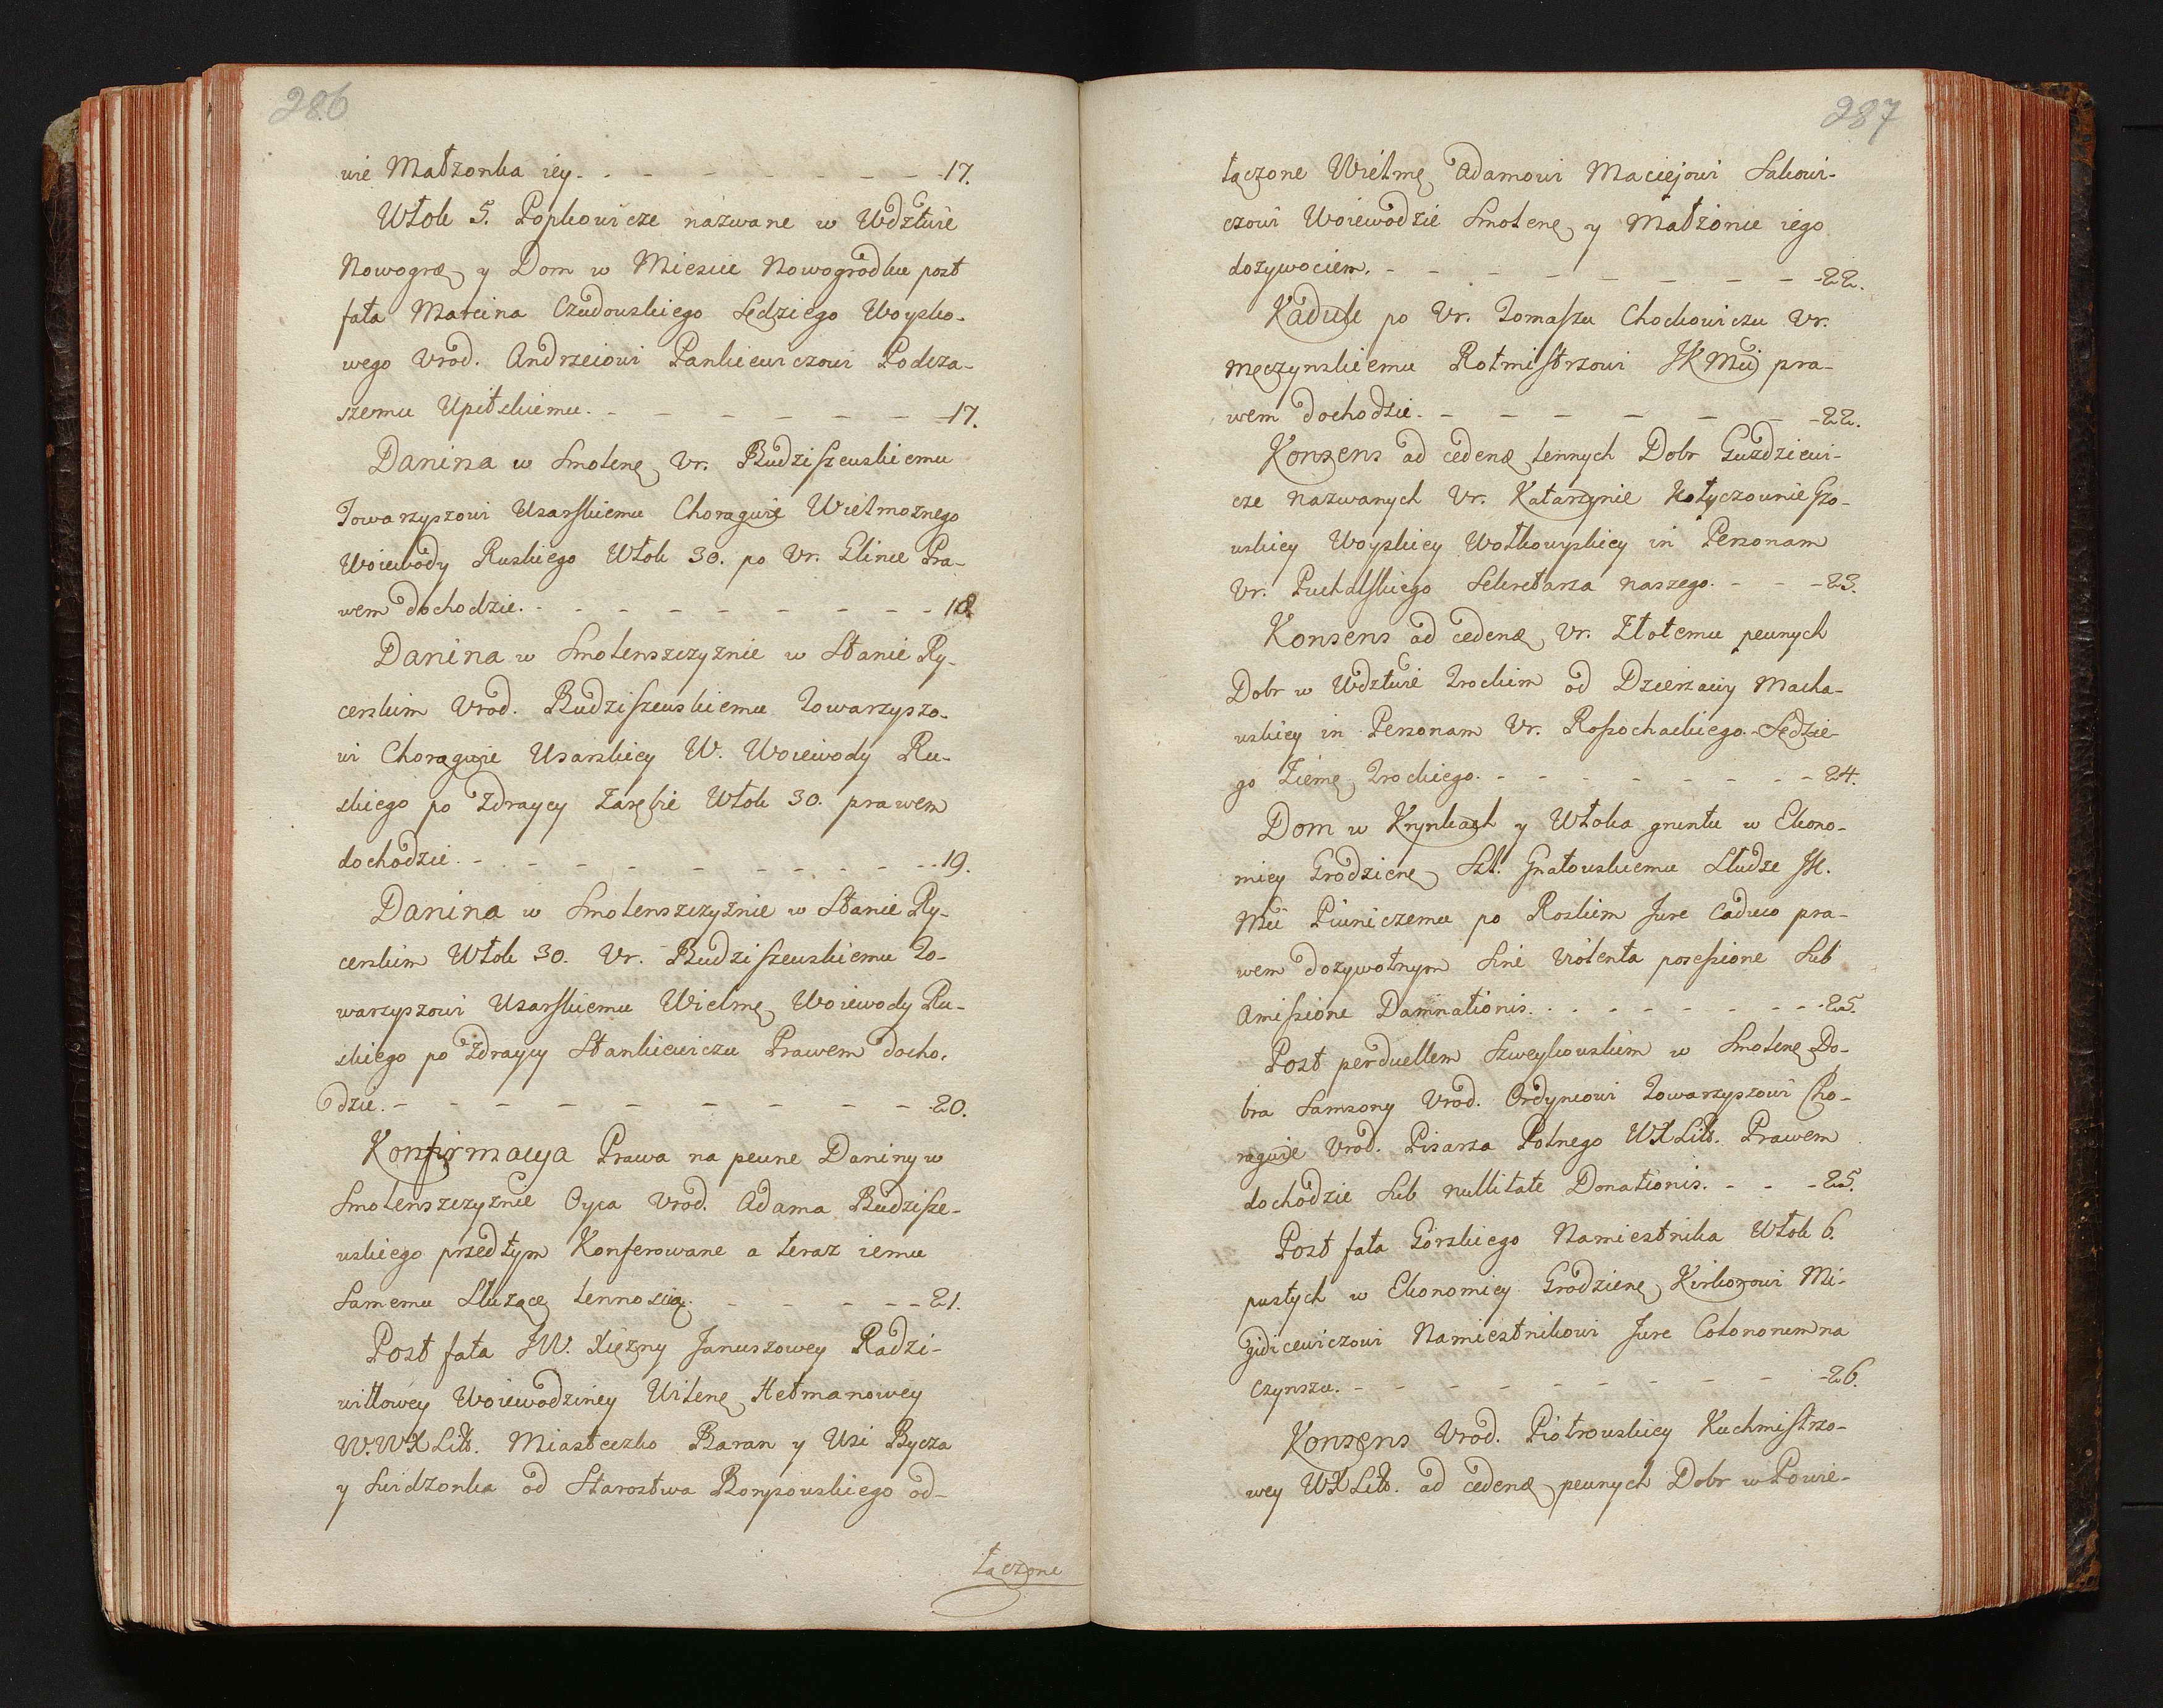 286
wie Małżonka iey. - - - - - - - - 17.
Włok 5. Popkowicze nazwane w Wdztwie
Nowogrȩ y Dom w Mieście Nowogrodku post
fata Marcina Czudowskiego Sędziego Woysko-
wego Vrod. Andrzeiowi Pankiewiczowi Podcza-
szemu Upitskiemu. - - - - - - - 17.
Danina w Smolenȩ Vr. Budziszewskiemu
Towarzyszowi Usarskiemu Choragwie Wielmożnego
Woiewody Ruskiego Włok 30. po Vr. Glince Pra-
wem dochodzie. - - - - - - - - - 18.
Danina w Smolenszczyznie w Stanie Ry-
cerskim Vrod. Budziszewskiemu Towarzyszo-
wi Choragwie Usarskiey W. Woiewody Ru-
skiego po Zdraycy Zarębie Włok 30. prawem
dochodzie. - - - - - - - - - - 19.
Danina w Smolenszczyznie w Stanie Ry-
cerskim Włok 30. Vr. Budziszewskiemu To-
warzyszowi Usarskiemu Wielmȩ Woiewody Ru-
skiego po Zdraycy Stankiewiczu Prawem docho-
dzie. - - - - - - - - - - 20.
Konfirmacya Prawa na pewne Daniny w
Smolenszczyznie Oyca Vrod. Adama Budzisze-
wskiego przedtym Konferowane a teraz iemu
Samemu Służącȩ lennoscią. - - - - - 21.
Post fata JW. Xiężny Januszowey Radzi-
wiłłowey Woiewodziney Wilenȩ Hetmanowey
W. WXLitt. Miasteczko Baran y Wsi Bycza
y Swidzonka od Starostwa Borysowskiego od-
łączone
287
łączone Wielmȩ Adamowi Maciejowi Sakowi-
czowi Woiewodzie Smolenȩ y Małżonce iego
dożywociem. - - - - - - - - - 22.
Kaduk po Vr. Tomaszu Chockowiczu Vr.
Męczynskiemu Rotmistrzowi JKMci pra-
wem dochodzie. - - - - - - - 22.
Konsens ad cedenȩ lennych Dobr Guzdziewi-
cze nazwanych Vr. Katarzynie Kotyczownie
wskiey Woyskiey Wołkowyskiey in Personam
Vr. Puchalskiego Sekretarza naszego. - - - 23.
Konsens ad cedenȩ Vr. Złotemu pewnych
Dobr w Wdztwie Trockim od Dzierzawy Macha-
wskiey in Personam Vr. Rossochackiego Sędzie-
go Ziemȩ Trockiego. - - - - - - - - 24.
Dom w Krynkach y Włoka gruntu w Ekono-
miey Grodzienȩ Szl. Gnatowskiemu Słudze JK.
Mci Piwniczemu po Roskim Jure Caduco pra-
wem dożywotnym Sine violenta posessione Sub
Amissione Damnationis. - - - - - - 25.
Post perduellem Szweykowskim w Smolenȩ Do-
bra Samsony Vrod. Ordyncowi Towarzyszowi Cho-
ragwie Vrod. Pisarza Polnego WXLitt. Prawem
dochodzie Sub nullitate Donationis. - - - 25.
Post fata Gorskiego Namiestnika Włok 6.
pustych w Ekonomiey Grodzienȩ Kirkorowi Mi-
Namiestnikowi Jure Colonorum na
Czynszu. - - - - - - - - - - 26.
Konsens Vrod. Piotrowskiey Kuchmistrzo-
wey WXLitt. ad cedenȩ pewnych Dobr w Powie-